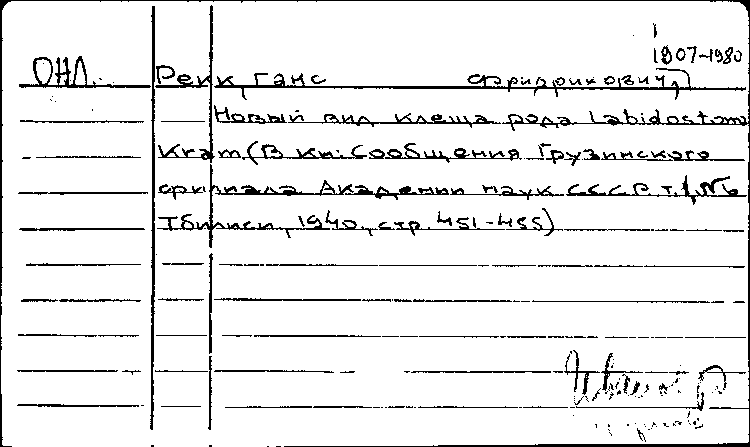 1907-1980
ОНЛ. Рекк, Ганс Фридрихович,
Новый вид клеща рода Labidostoma
Kram. (В кн: Сообщения Грузинского
филиала Академии наук СССР. т. 1, № 6
Тбилиси, 1940, стр. 451-455)